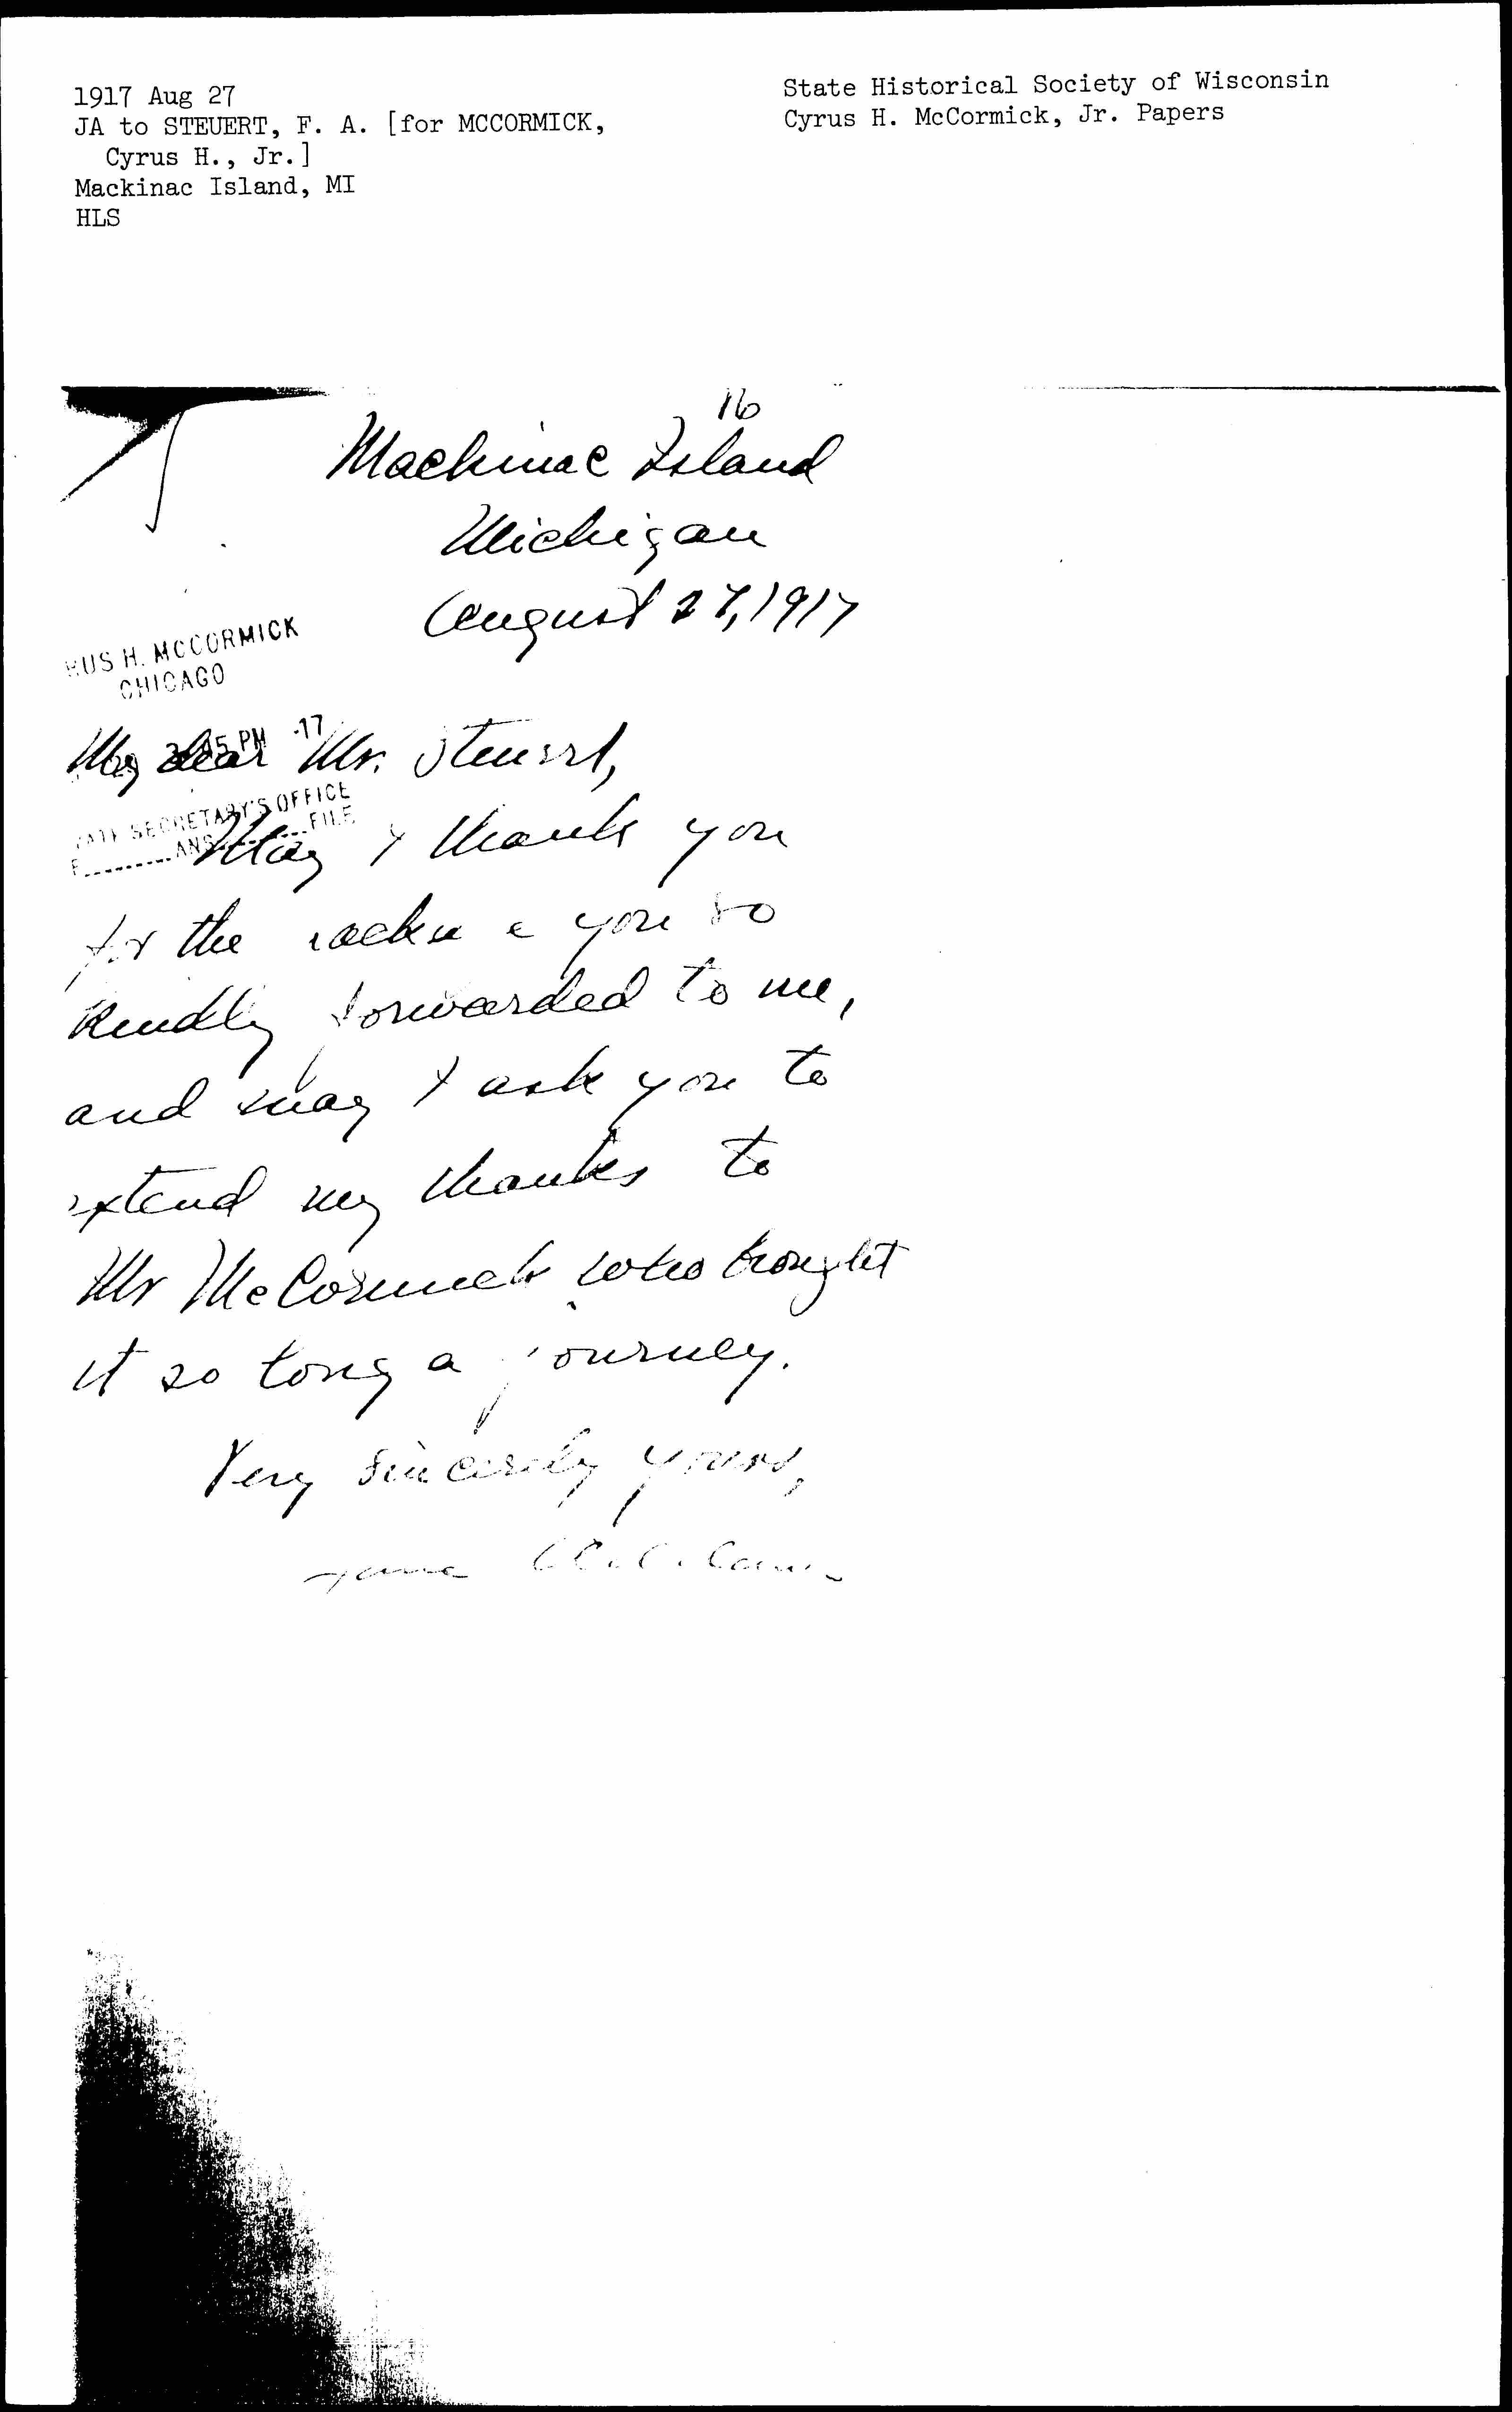 1917 Aug 27
JA to STEUERT, F. A. [for MCCORMICK,
Cyrus H., Jr.]
Mackinac Island, MI
HLS
State Historical Society of Wisconsin
Cyrus H. McCormick, Jr. Papers
16
Mackinac Island
Michigan
August 27, 1917
RUS H. MCCORMICK
CHICAGO
3 45 PM -17
My dear Mr. Steuert,
SECRETARY'S OFFICE
ANS FILE
May I thank you
for the you so
kindly forwarded to me,
and may I ask you to
extend my thanks to
Mr McCormick who brought
it so long a journey.
Very sincerely yours,
Jane Addams